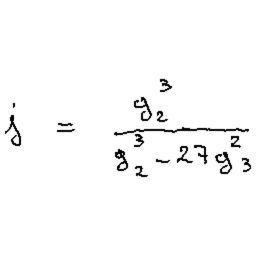 j = \frac{g_2^3}{g_2^3 - 27g_3^2}